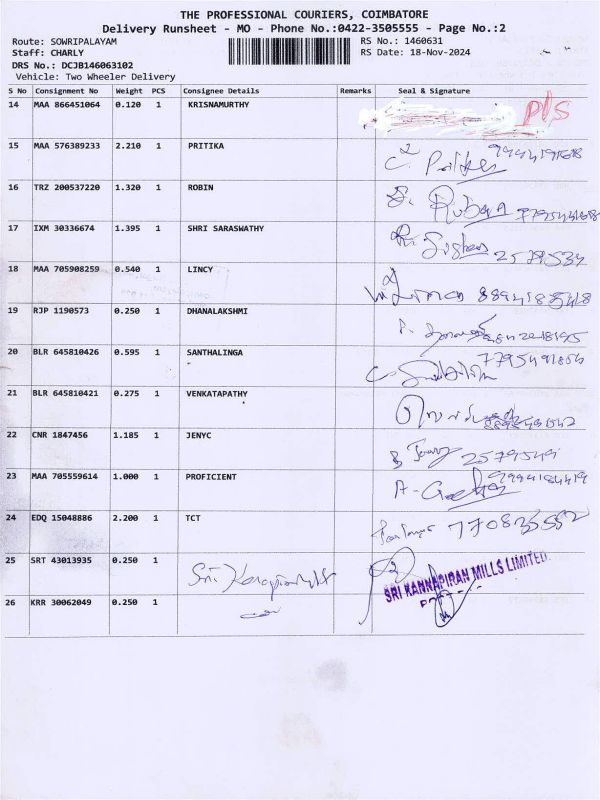 THE PROFESSIONAL COURIERS, COIMBATORE
Delivery Runsheet - MO - Phone No.:0422-3505555 - Page No.:2
Route: SOWRIPALAYAM RS No.: 1460631
Staff: CHARLY RS Date: 18-Nov-2024
DRS No.: DCJB146063102
Vehicle: Two Wheeler Delivery
S No Consignment No Weight PCS Consignee Details Remarks Seal & Signature
14 MAA 866451064 0.120 1 KRISNAMURTHY P/S
15 MAA 576389233 2.210 1 PRITIKA
16 TRZ 200537220 1.320 1 ROBIN
17 IXM 30336674 1.395 1 SHRI SARASWATHY 2579534
18 MAA 705908259 0.540 1 LINCY
19 RJP 1190573 0.250 1 DHANALAKSHMI
20 BLR 645810426 0.595 1 SANTHALINGA 7795491854
21 BLR 645810421 0.275 1 VENKATAPATHY
22 CNR 1847456 1.185 1 JENYC B Jenny 2579549
23 MAA 705559614 1.000 1 PROFICIENT A- Geetha 9994184419
24 EDQ 15048886 2.200 1 TCT
25 SRT 43013935 0.250 1 Sri Kannapiran Mills SRI KANNAPIRAN MILLS LIMITED.
26 KRR 30062049 0.250 1